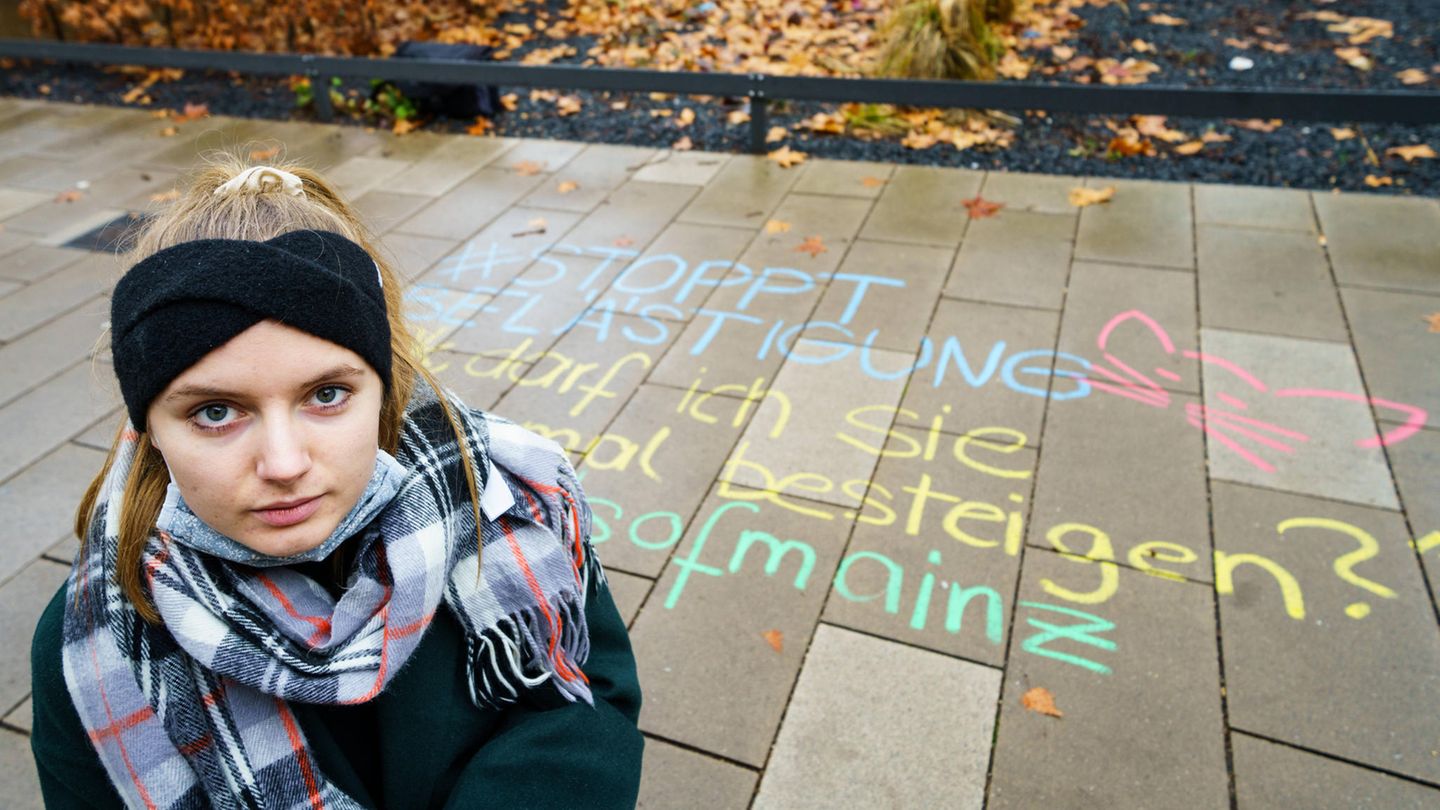 #STOPPT
BELÄSTIGUNG
darf ich sie
mal besteigen?
sofmainz